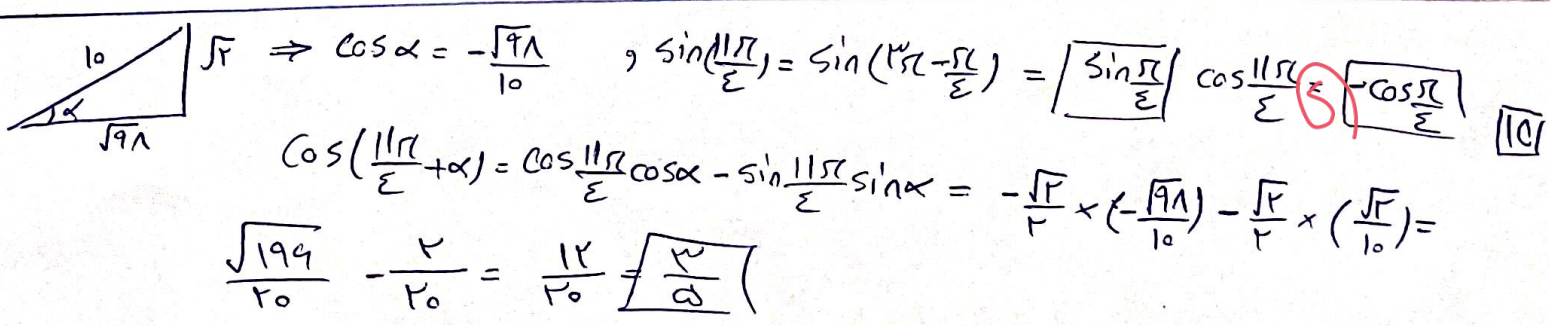 ۱۰ √۲ ⇒ cos α = -√۹۸/۱۰ , sin(۱۱π/۴) = sin(۳π - π/۴) = sin π/۴ cos ۱۱π/۴ = -cos π/۴
α √۹۸
cos(۱۱π/۴ + α) = cos ۱۱π/۴ cos α - sin ۱۱π/۴ sin α = -√۲/۲ × (-√۹۸/۱۰) - √۲/۲ × (√۲/۱۰) =
√۱۹۶/۲۰ - ۲/۲۰ = ۱۲/۲۰ = ۳/۵